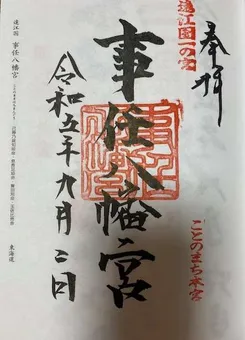 奉拝
遠江国一の宮
ことのまち本宮
事任八幡宮
令和五年九月二日
遠江国 事任八幡宮
東海道